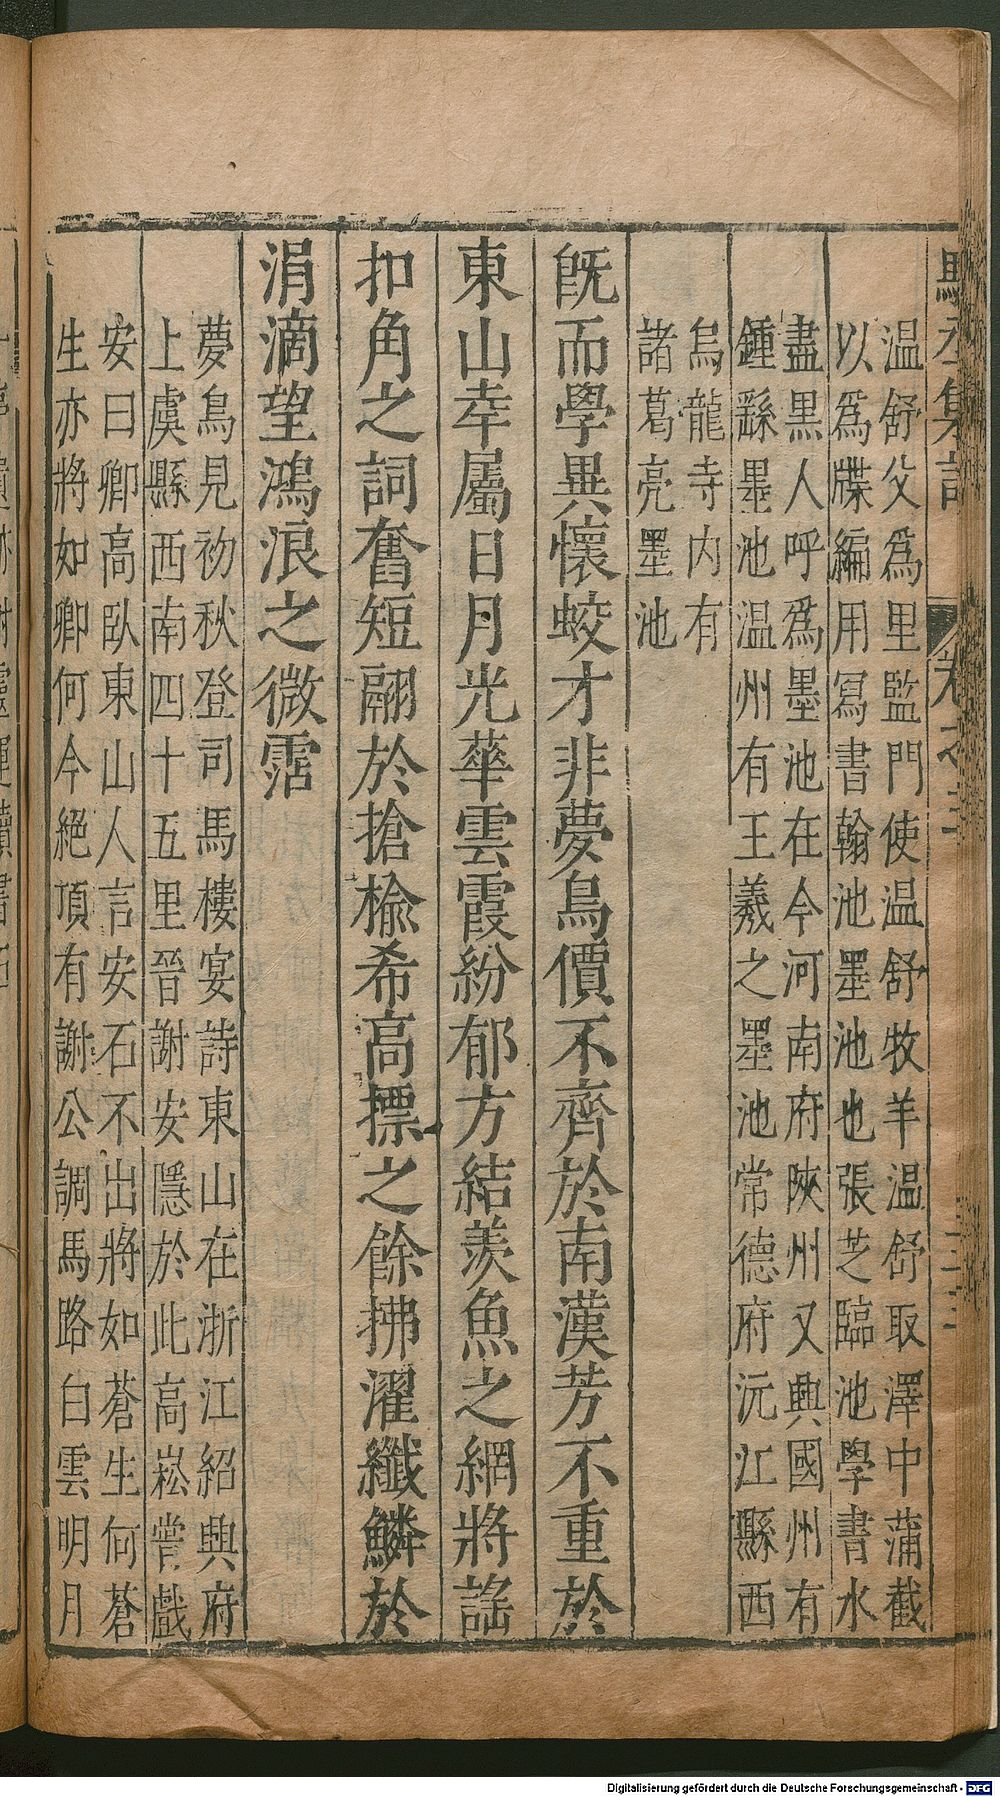 温舒父爲里監門使温舒牧羊温舒取澤中蒲截
以爲牒編用冩書翰池墨池也張芝臨池學書水
盡黑人呼爲墨池在今河南府陜州又興國州有
鍾繇墨池温州有王羲之墨池常德府沅江縣西
烏龍寺内有
諸葛亮墨池
旣而學異懷蛟才非夢鳥價不齊於南漢芳不重於
東山幸屬日月光華雲霞紛郁方結羨魚之網將謡
扣角之詞奮短翮於搶楡希高摽之餘拂濯纖鱗於
涓滴望鴻浪之微霑
夢鳥見初秋登司馬樓宴詩東山在浙江紹興府
上虞縣西南四十五里晉謝安隱於此高崧甞戲
安曰卿高臥東山人言安石不出將如蒼生何蒼
生亦將如卿何今絕頂有謝公調馬路白雲明月
Digitalisierung gefördert durch die Deutsche Forschungsgemeinschaft - DFG